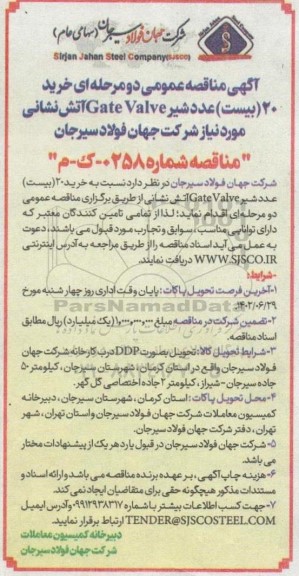 شرکت جهان فولاد سیرجان (سهامی عام)
Sirjan Jahan Steel Company(SJSCO)
آگهی مناقصه عمومی دو مرحله ای خرید
۲۰ (بیست) عدد شیر Gate Valve آتش نشانی
مورد نیاز شرکت جهان فولاد سیرجان
"مناقصه شماره ۰۲۵۸-ک-م"
شرکت جهان فولاد سیرجان در نظر دارد نسبت به خرید ۲۰ (بیست)
عدد شیر Gate Valve آتش نشانی از طریق برگزاری مناقصه عمومی
دو مرحله ای اقدام نماید؛ لذا از تمامی تامین کنندگان معتبر که
دارای توانایی مناسب، سوابق و تجارب مورد قبول می باشند، دعوت
به عمل می آید اسناد مناقصه را از طریق مراجعه به آدرس اینترنتی
WWW.SJSCO.IR دریافت نمایند.
-شرایط:
۱-آخرین فرصت تحویل پاکات: پایان وقت اداری روز چهار شنبه مورخ
۱۴۰۲/۰۶/۲۹.
۲-تضمین شرکت در مناقصه مبلغ ۱,۰۰۰,۰۰۰,۰۰۰ (یک میلیارد) ریال مطابق
اسناد مناقصه.
۳-شرایط تحویل کالا: تحویل بصورت DDP درب کارخانه شرکت جهان
فولاد سیرجان واقع در استان کرمان، شهرستان سیرجان، کیلومتر ۵۰
جاده سیرجان - شیراز، کیلومتر ۲ جاده اختصاصی گل گهر.
۴-محل تحویل پاکات: استان کرمان، شهرستان سیرجان، دبیرخانه
کمیسیون معاملات شرکت جهان فولاد سیرجان و استان تهران، شهر
تهران، دفتر شرکت جهان فولاد سیرجان.
۵-شرکت جهان فولاد سیرجان در قبول یا رد هر یک از پیشنهادات مختار
می باشد.
۶-هزینه چاپ آگهی، بر عهده برنده مناقصه می باشد و ارائه اسناد و
مستندات مذکور هیچگونه حقی برای متقاضیان ایجاد نمی کند.
۷-جهت کسب اطلاعات بیشتر با شماره ۰۹۹۱۲۹۳۸۳۱۷ و آدرس ایمیل
TENDER@SJSCOSTEEL.COM ارتباط برقرار نمایید.
دبیرخانه کمیسیون معاملات
شرکت جهان فولاد سیرجان
ParsNamadData